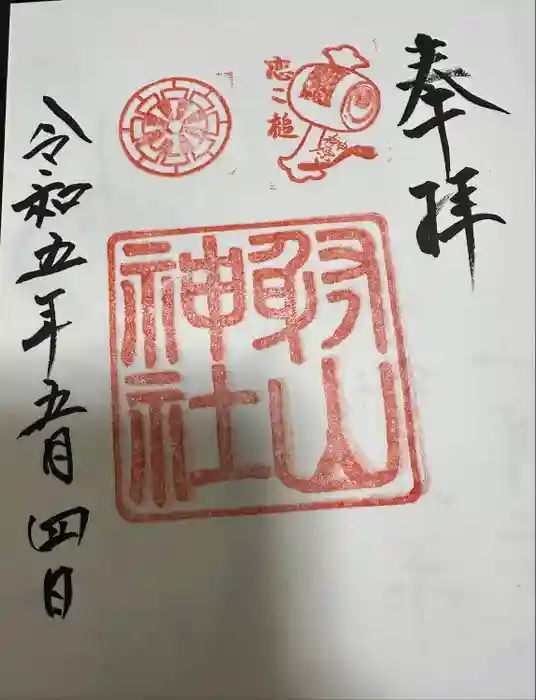 奉拝
恋こ槌
射山
神社
令和五年五月四日